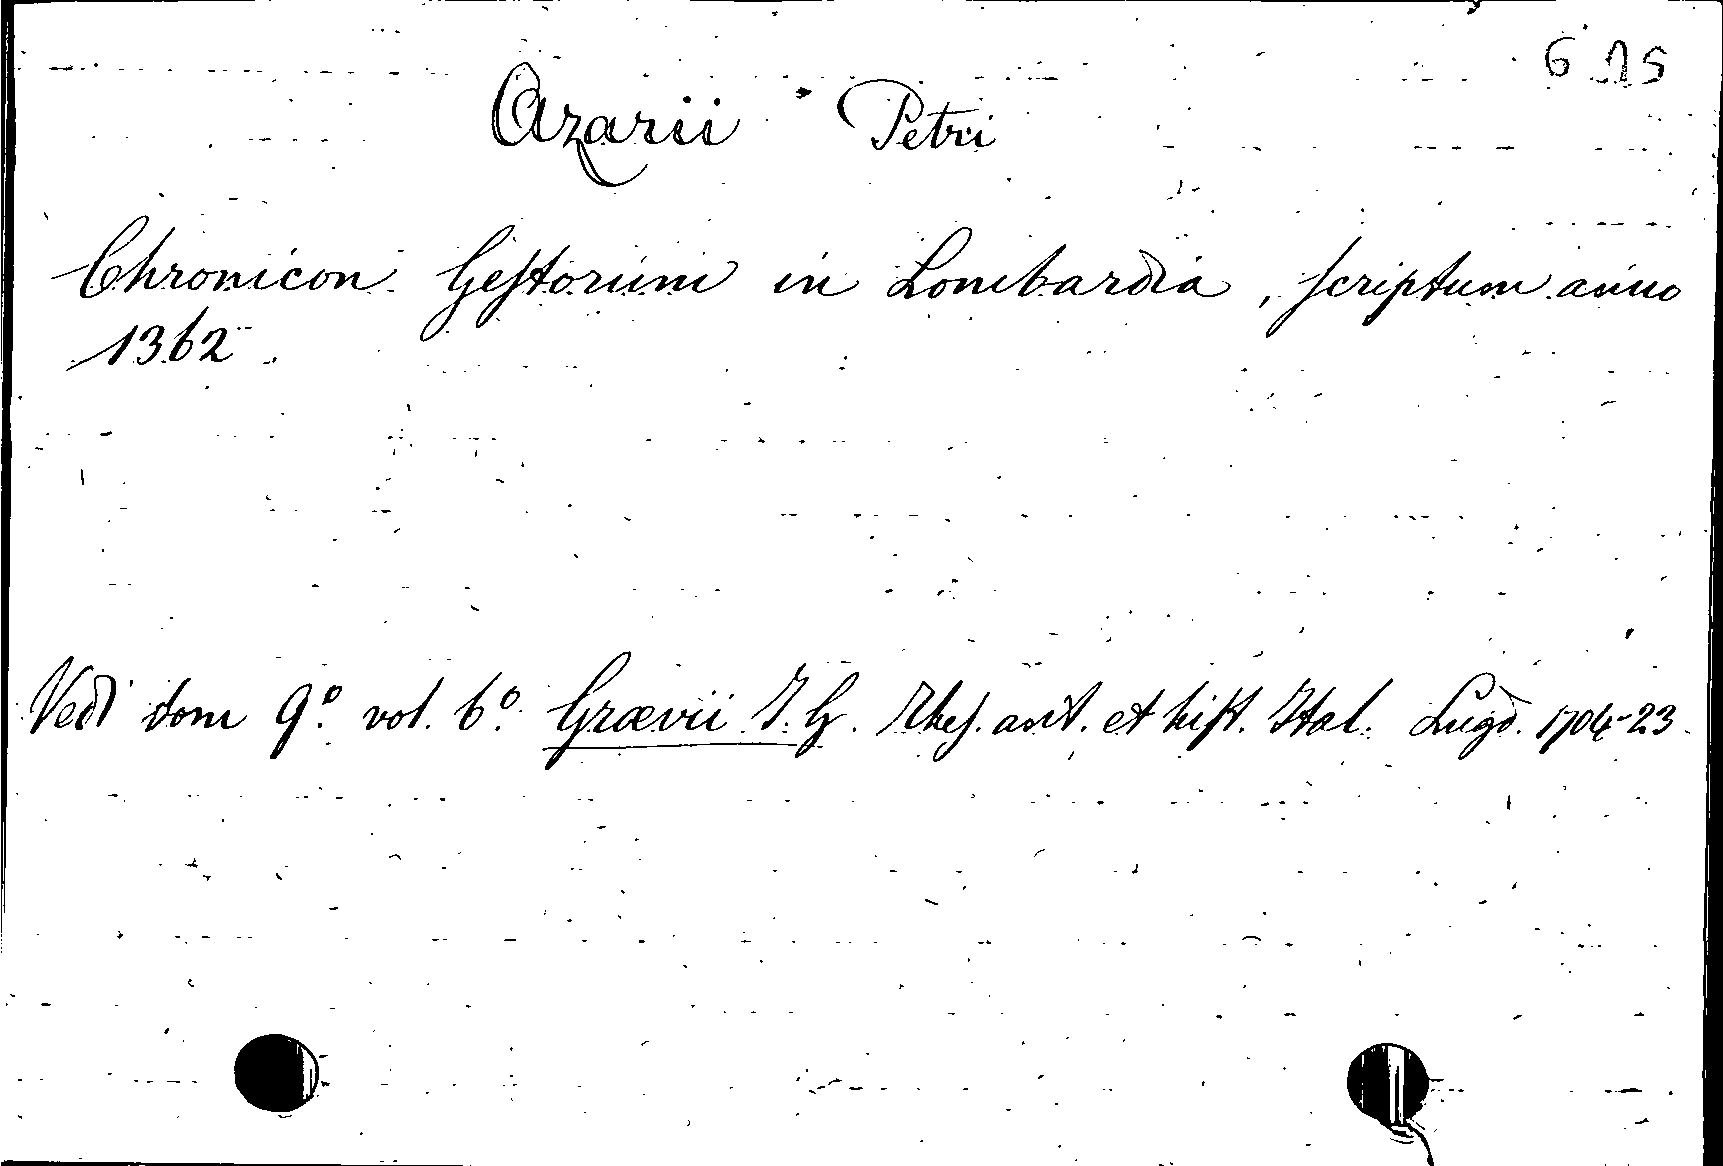 6 25
Azarii Petri
Chronicon Gestorum in Lombardia, scriptum anno
1362.
Vedi tom 9.º vol. 6.º Grævii J. G. Thes. ant. et hist. Ital. Lugd. 1704-23.